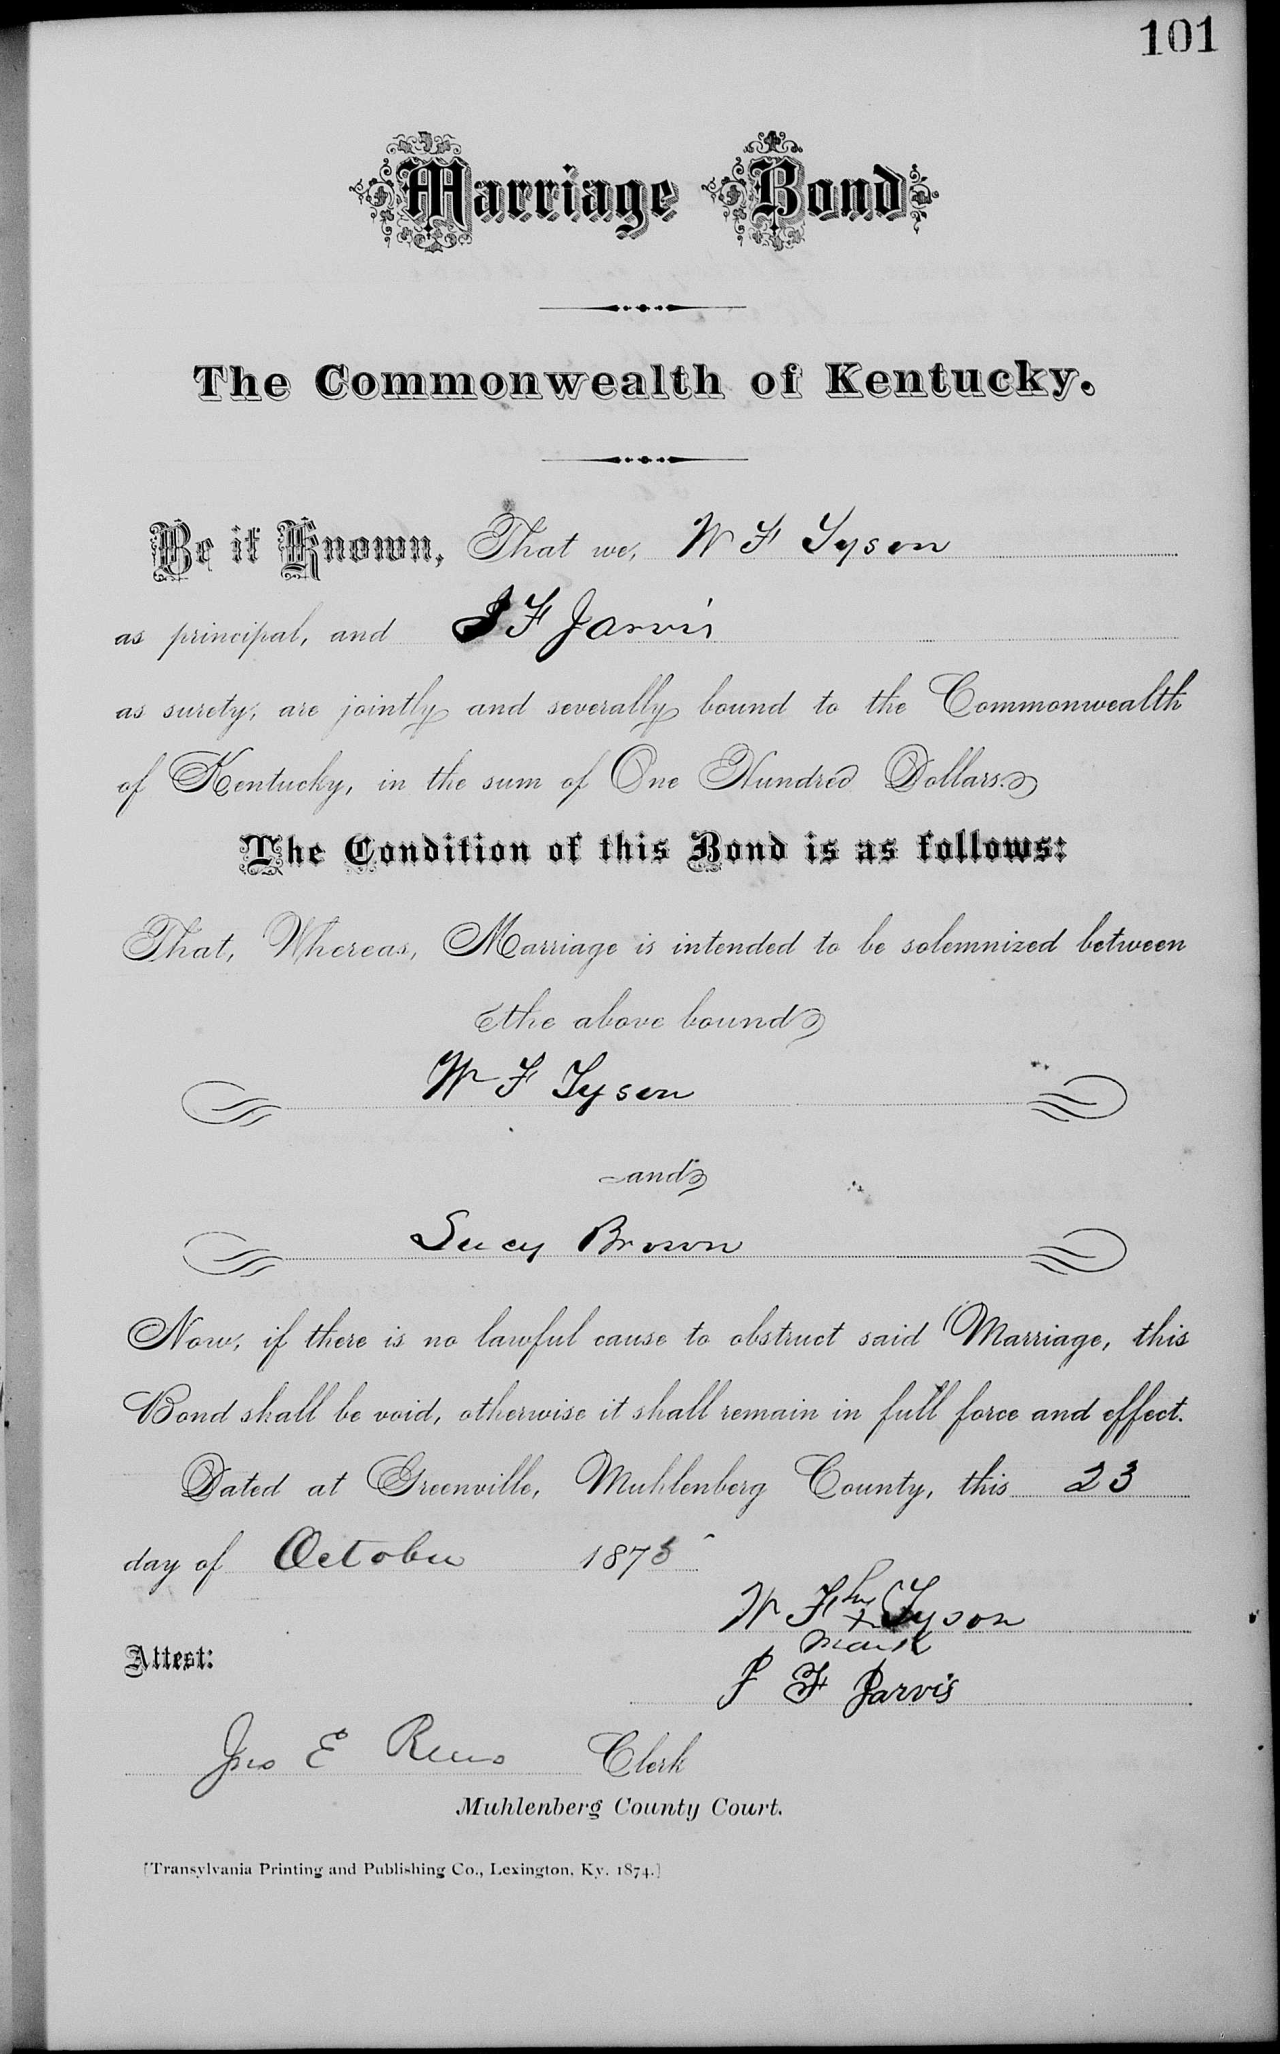 101
Marriage Bond
The Commonwealth of Kentucky.
Be it Known, That we, W F Tyson
as principal, and J F Jarvis
as surety, are jointly and severally bound to the Commonwealth
of Kentucky, in the sum of One Hundred Dollars.
The Condition of this Bond is as follows:
That, Whereas, Marriage is intended to be solemnized between
the above bound
W F Tyson
and
Lucy Brown
Now, if there is no lawful cause to obstruct said Marriage, this
Bond shall be void, otherwise it shall remain in full force and effect.
Dated at Greenville, Muhlenberg County, this 23
day of October 1875
W F his Tyson
x
mark
Attest:
J F Jarvis
Jno E Reno Clerk
Muhlenberg County Court.
[Transylvania Printing and Publishing Co., Lexington, Ky. 1874.]